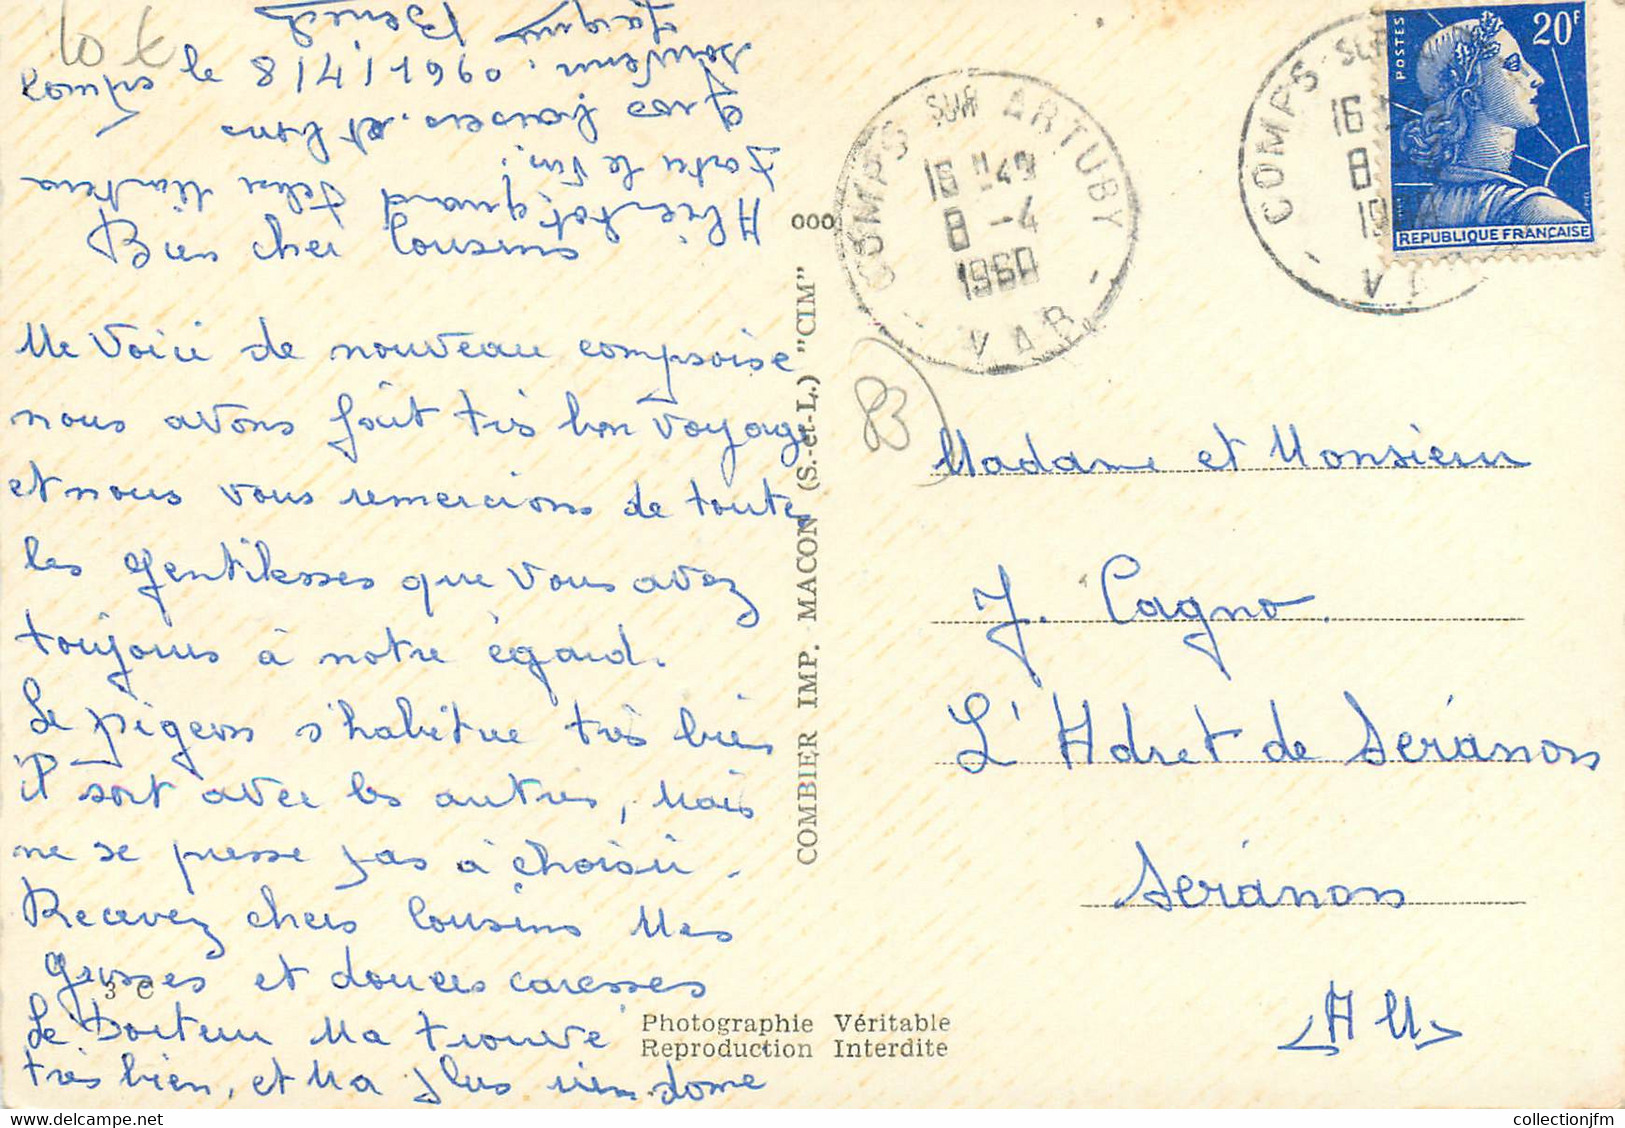 10 €
Comps le 8/4/1960.
Bien cher Cousins
Me Voici de nouveau compsoise
nous avons fait très bon voyage
et nous vous remercions de toutes
les gentilesses que vous avez
toujours à notre égard.
Le pigeon s'habitue très bien
il sort avec les autres, Mais
ne se presse pas a choisir.
Recevez chers Cousins Mes
grosses et douces caresses
Le Docteur Ma trouvé
très bien, et Ma plus rien donné
A bientôt quand
fatu le
gros baisers. et bons
souvenir.
3 C
ooo
COMBIER IMP. MACON (S.-et-L.) "CIM"
Photographie Véritable
Reproduction Interdite
COMPS SUR ARTUBY
16 H
8 -4
1960
VAR
COMPS SUR
16
8
POSTES
20F
REPUBLIQUE FRANÇAISE
83
Madame et Monsieur
J. Cagno.
L'Adret de Séranon
Séranon
A M
collectionjfm